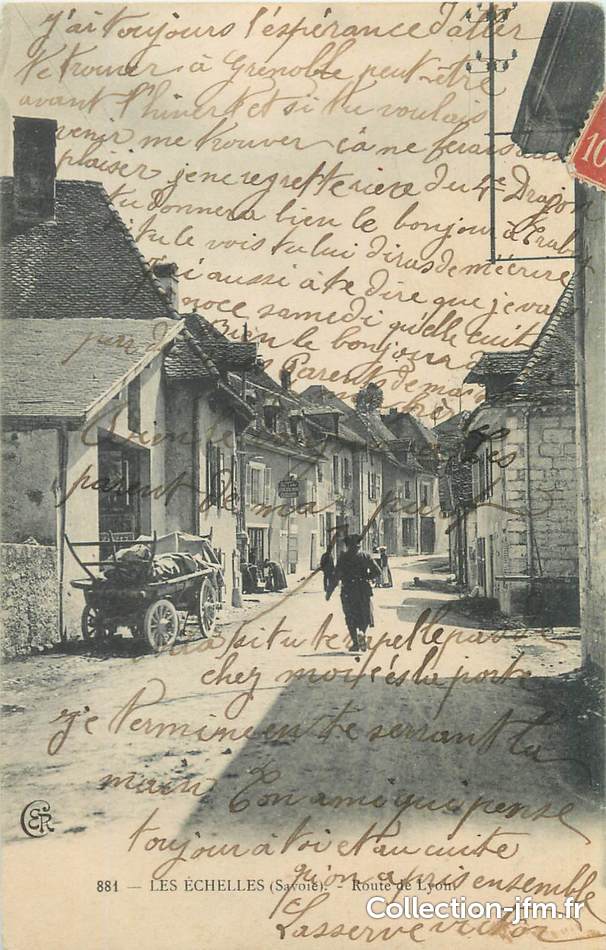 j'ai toujours l'espérance d'aller
te trouver à Grenoble peut-être
avant l'hiver et si tu voulais
venir me trouver ça ne ferais
plaisir je ne regrette rien du 4e Dragon
tu donnera bien le bonjour à
si tu le vois tu lui diras de mécrire
j'ai aussi à te dire que je vais
noce samedi
bien le bonjour à
Parents de ma
bien le bonjour
parent de ma part
si tu te rappelle passe
chez moi
la porte
je termine en te serrant la
main Ton ami qui pense
toujours à toi et au cuite
qu'on a pris ensemble
Lasserve victor
10
881 — LES ÉCHELLES (Savoie). - Route de Lyon
Collection-jfm.fr